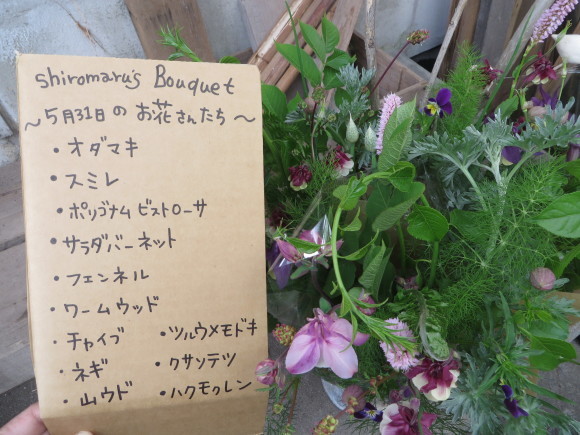 shiromaru's Bouquet
～5月31日のお花さんたち～
・オダマキ
・スミレ
・ポリゴナムビストローサ
・サラダバーネット
・フェンネル
・ワームウッド
・チャイブ ・ツルウメモドキ
・ネギ ・クサソテツ
・山ウド ・ハクモクレン